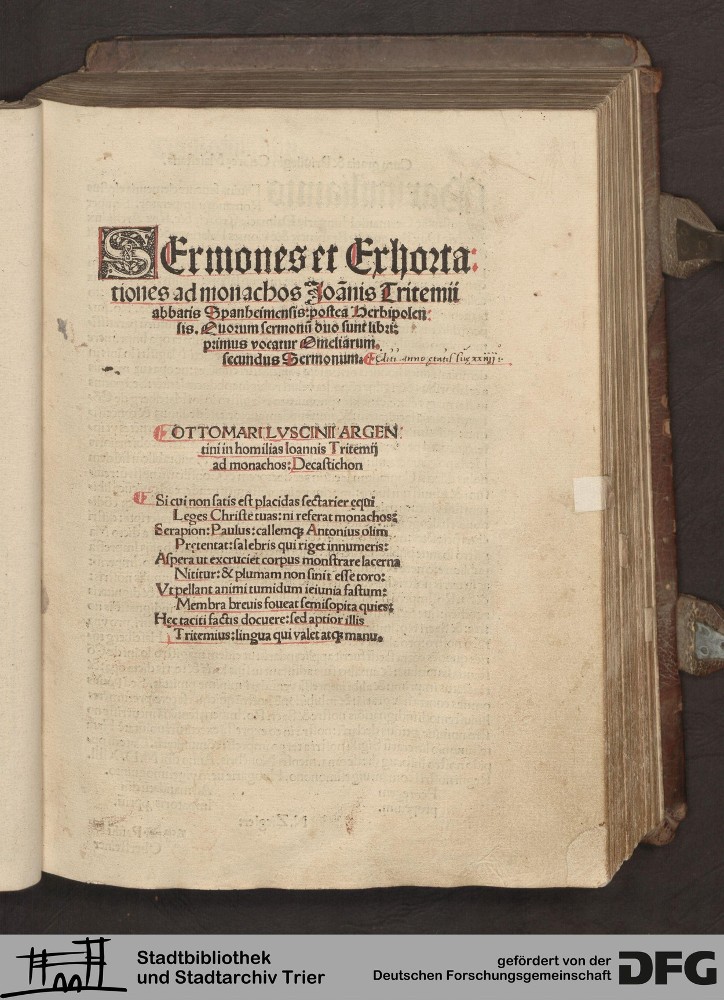 SErmones et Exhorta:
tiones ad monachos Joãnis Tritemii
abbatis Spanheimensis: postea Herbipolen:
sis. Quorum sermonũ duo sunt libri:
primus vocatur Omeliarum.
secundus Sermonum. Editi anno etatis sue xxiiij :.
OTTOMARI LVSCINII ARGEN:
tini in homilias Ioannis Tritemij
ad monachos: Decastichon
Si cui non satis est placidas sectarier equi
Leges Christe tuas: ni referat monachos:
Serapion: Paulus: callemq; Antonius olim
Pretentat: salebris qui riget innumeris:
Aspera ut excruciet corpus monstrare lacerna
Nititur: & plumam non sinit esse toro:
Vt pellant animi tumidum ieiunia fastum:
Membra breuis foueat semisopita quies:
Hec taciti factis docuere: sed aptior illis
Tritemius: lingua qui valet atq; manu.
Stadtbibliothek
und Stadtarchiv Trier
gefördert von der
Deutschen Forschungsgemeinschaft
DFG